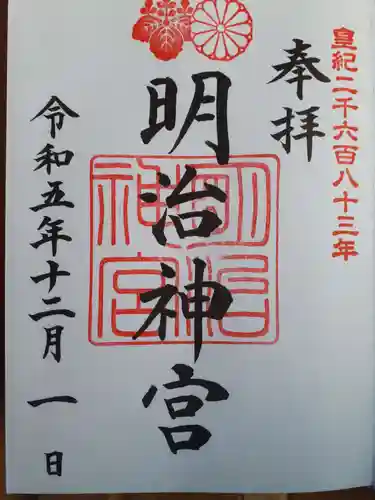 皇紀二千六百八十三年
奉拝
明治神宮
明治神宮
令和五年十二月一日